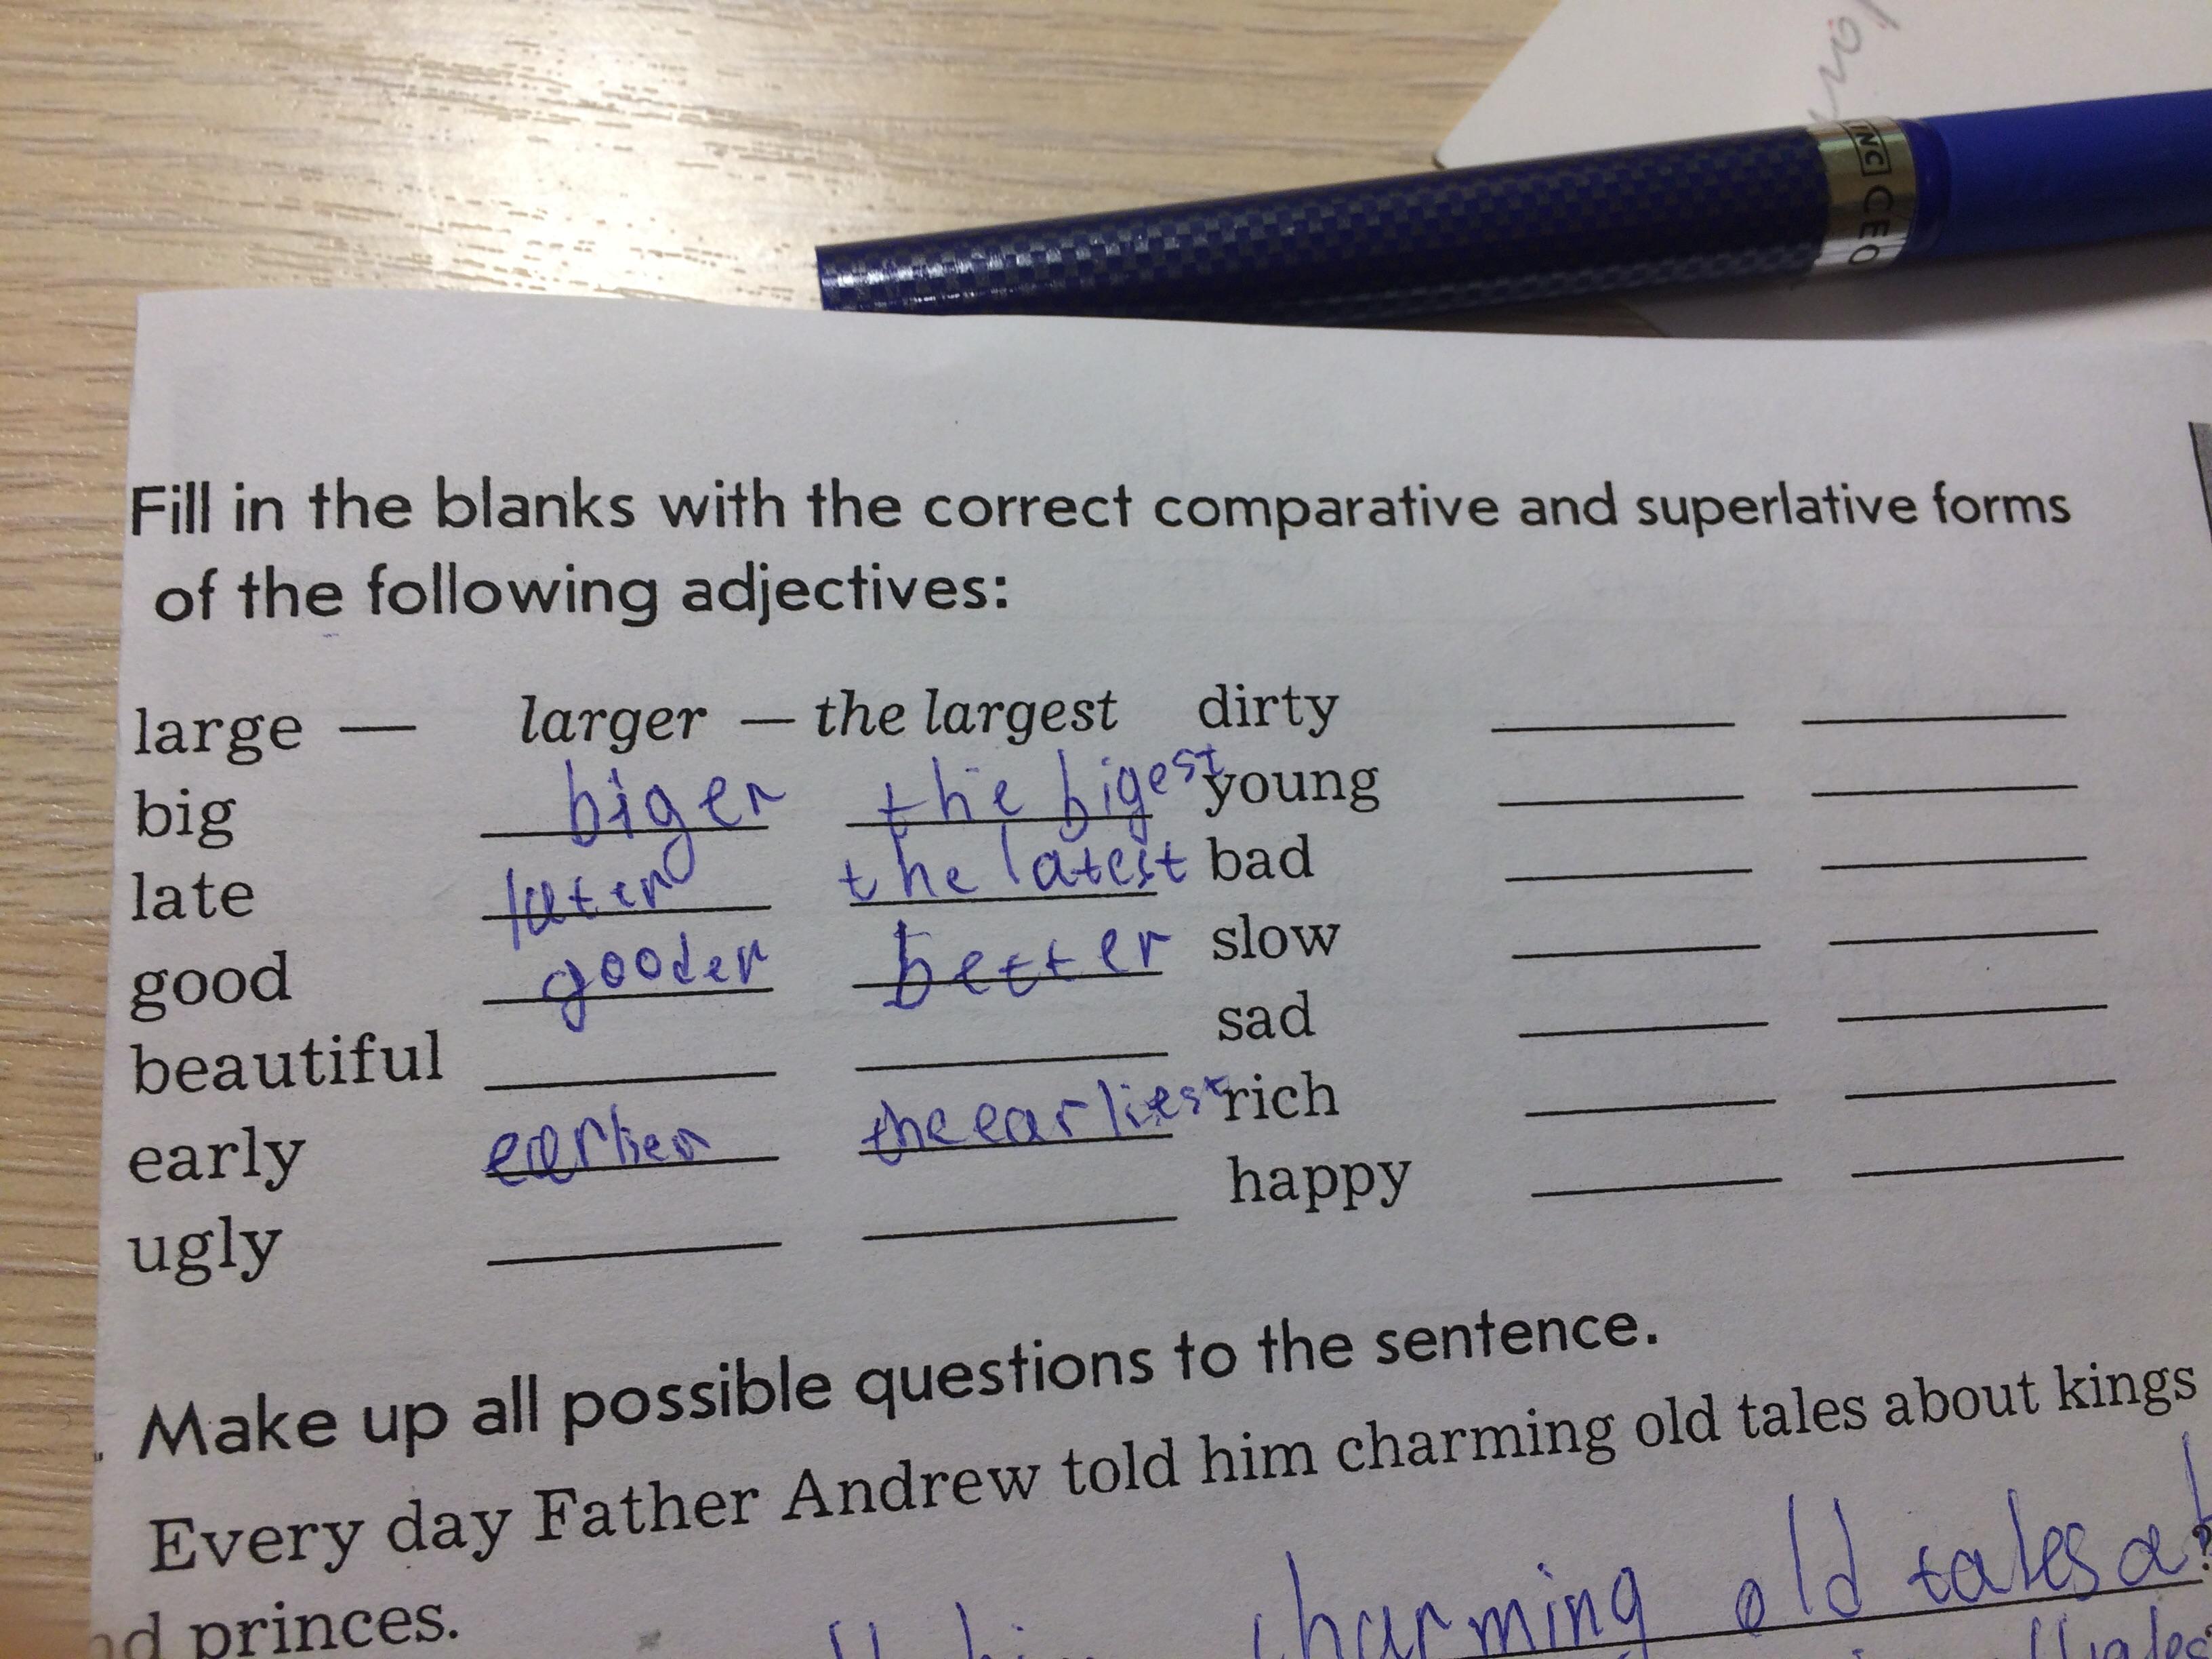 INC CEO
Fill in the blanks with the correct comparative and superlative forms
of the following adjectives:
large — larger — the largest
big biger the bigest
late later the latest
good gooder better
beautiful
early earlier the earliest
ugly
dirty
young
bad
slow
sad
rich
happy
Make up all possible questions to the sentence.
Every day Father Andrew told him charming old tales about kings
princes.
charming old tales